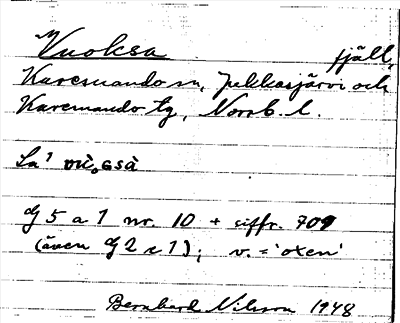 Vuoksa fjäll,
Karesuando sn, Jukkasjärvi och
Karesuando tg, Norrb. l.
La¹
G 5 a 1 nr. 10 + siffr. 709
(även G 2 c 1); v. = 'oxen'
Bernhard Nilsson 1948